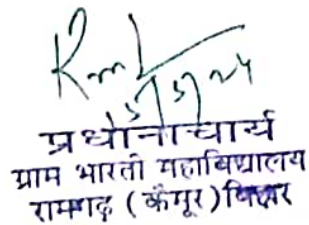 5/5/24
प्रधानाचार्य
ग्राम भारती महाविद्यालय
रामगढ़ (कैमूर) बिहार